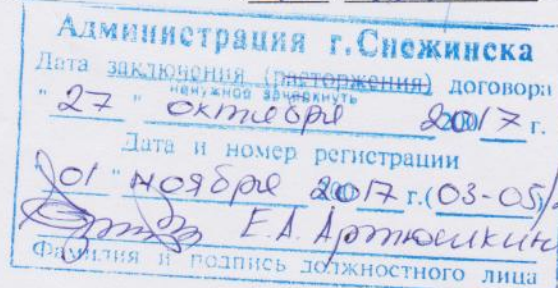 Администрация г.Снежинска
Дата заключения (расторжения) договора
ненужное зачеркнуть
"27" октября 2017 г.
Дата и номер регистрации
"01" ноября 2017 г.(03-05)/
Е.А. Артюшкин
Фамилия и подпись должностного лица